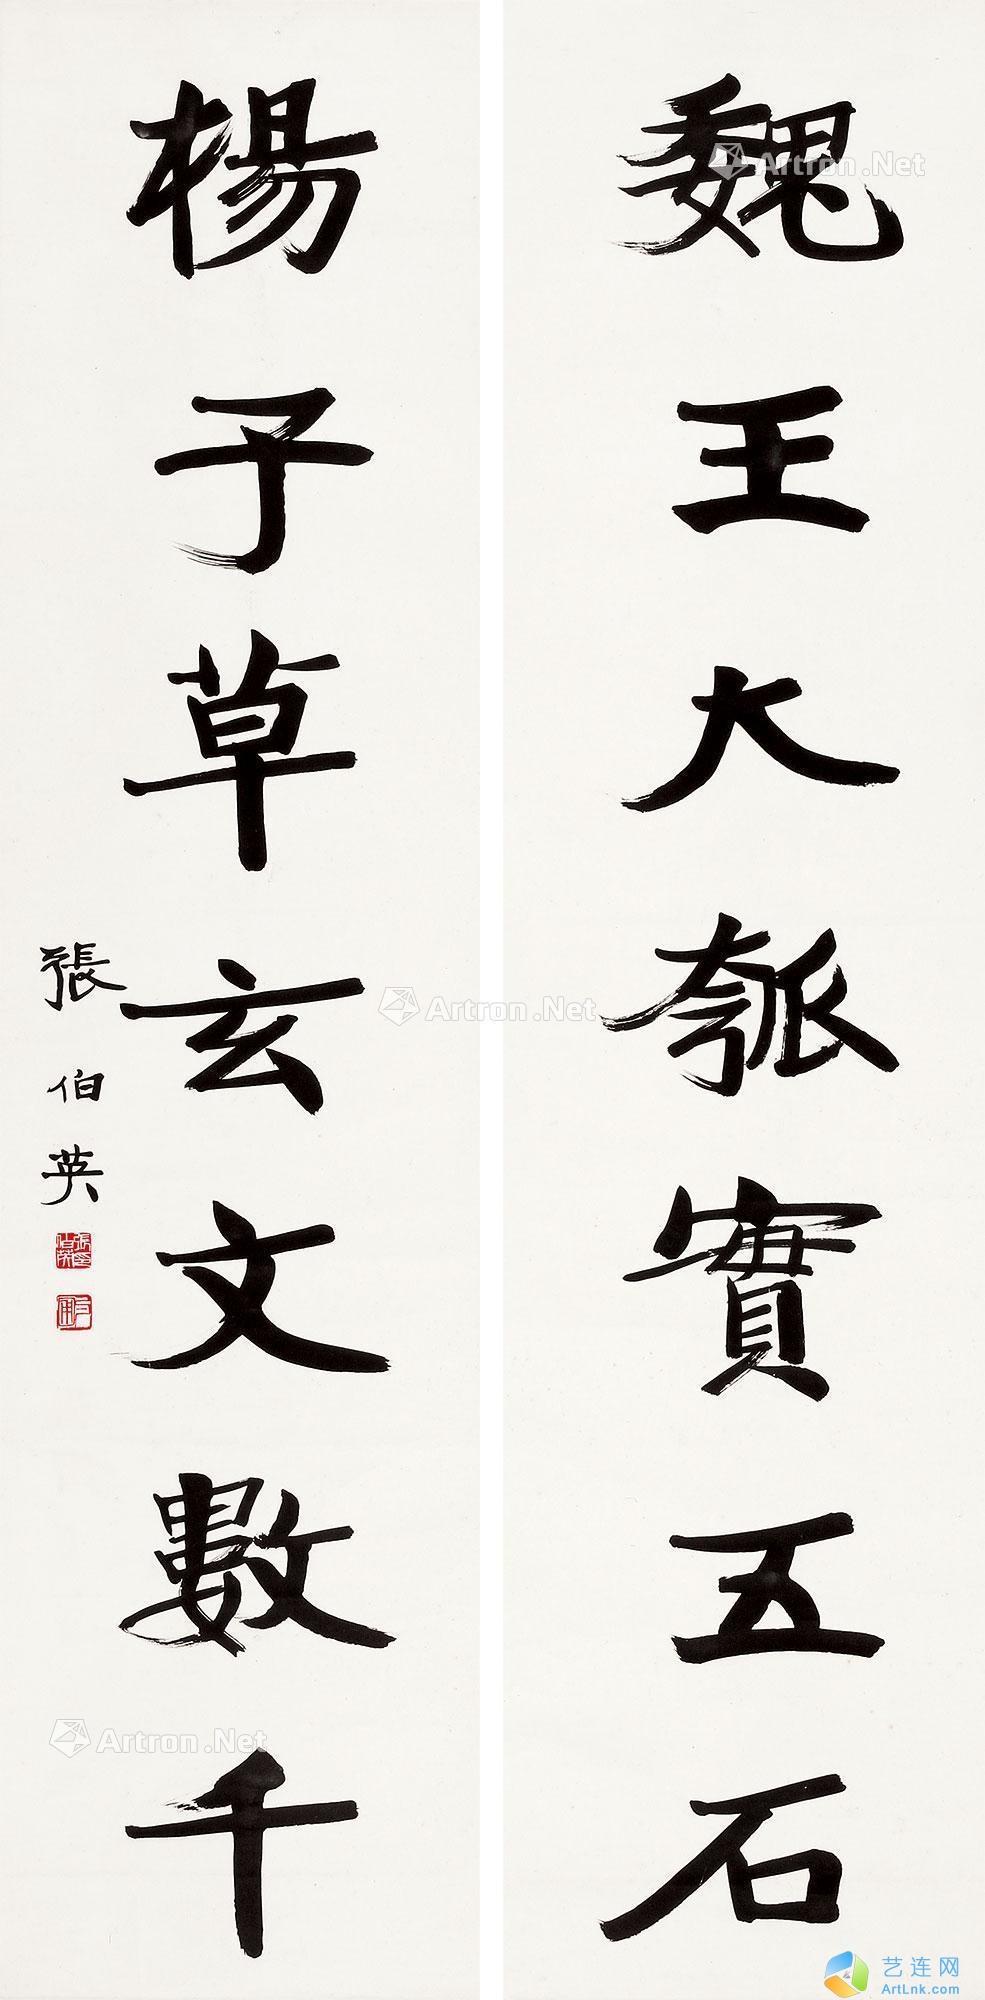 魏王大瓠實五石
楊子草玄文數千
張伯英
張伯英印
Artron.Net
Artron.Net
Artron.Net
艺连网
ArtLnk.com